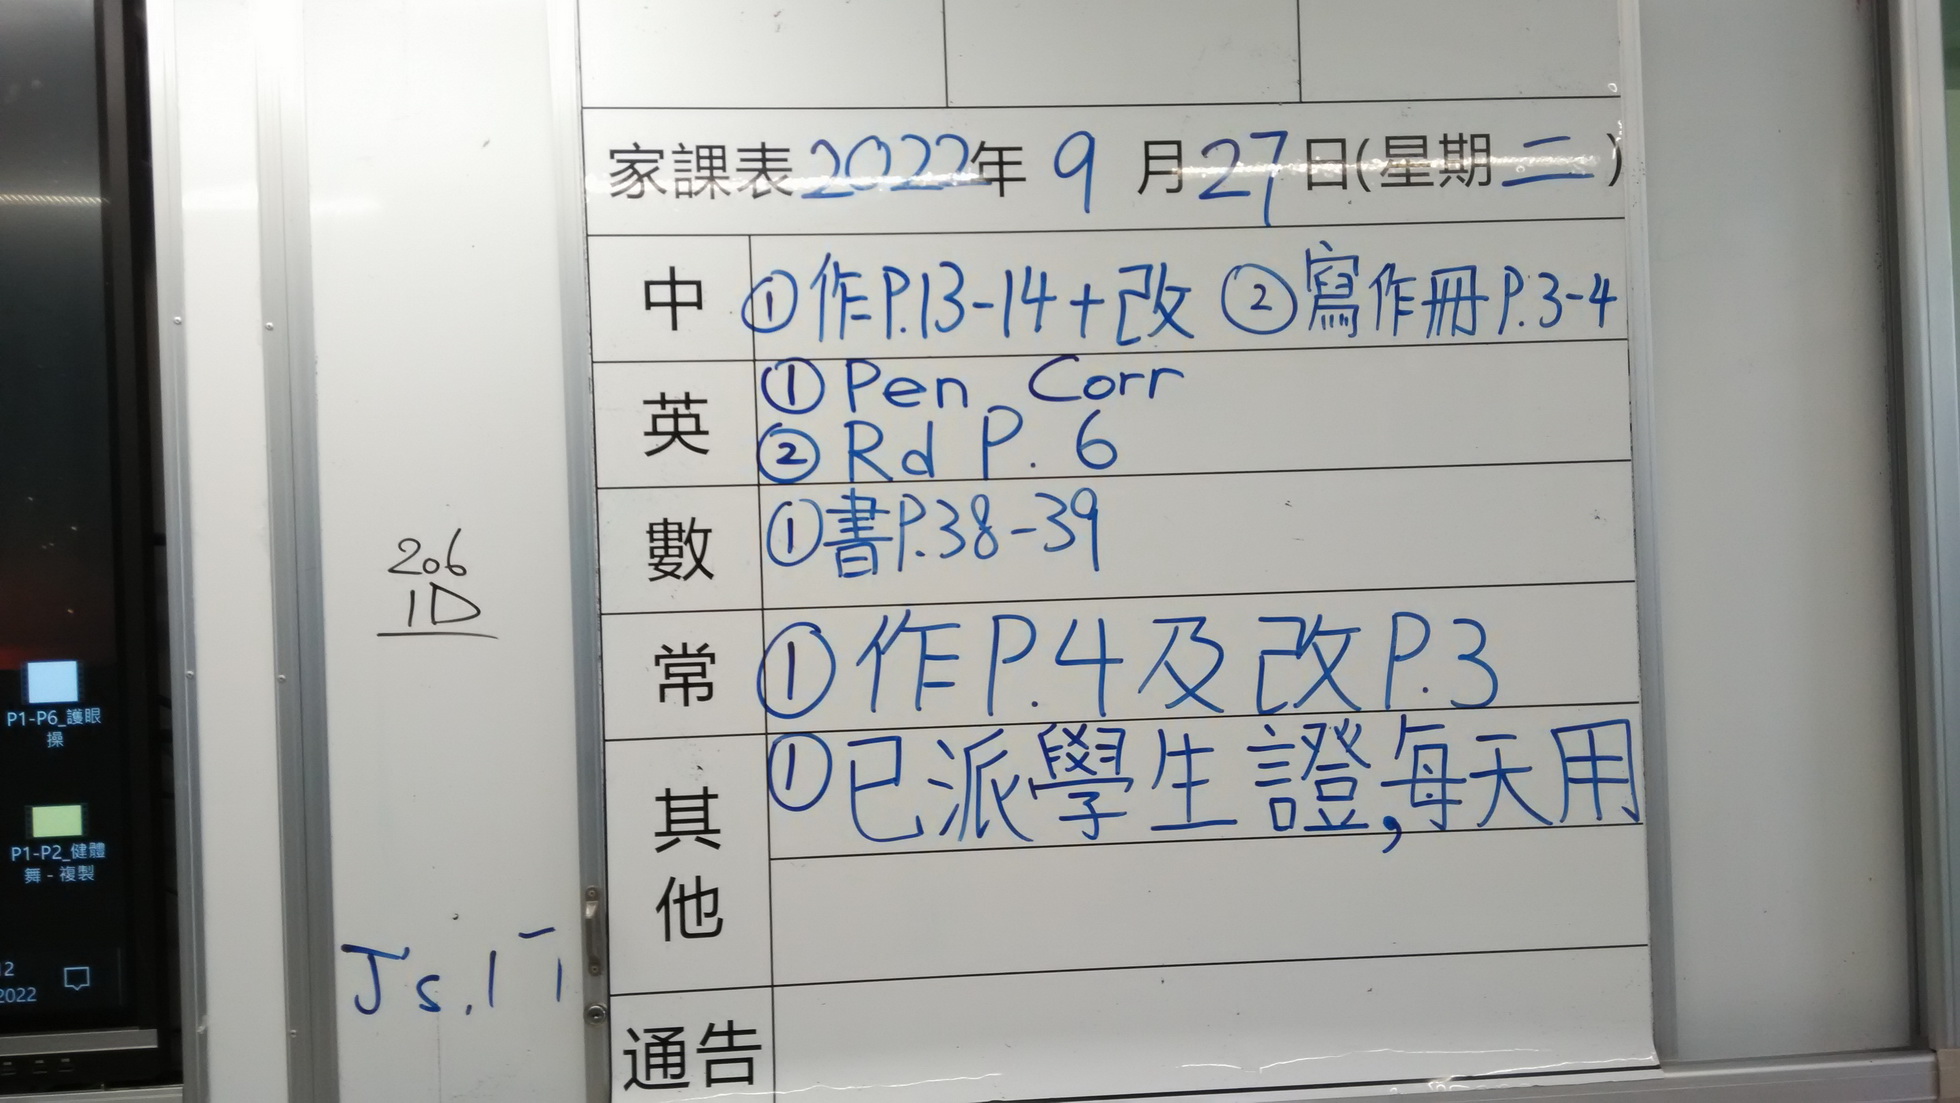 家課表2022年 9 月27日(星期二)
中 ①作P.13-14+改 ②寫作冊P.3-4
英 ① Pen Corr
② Rd P. 6
數 ①書P.38-39
常 ①作P.4及改P.3
其他 ①已派學生證,每天用
通告
206
1D
P1-P6_護眼
操
P1-P2_健體
舞 - 複製
2022